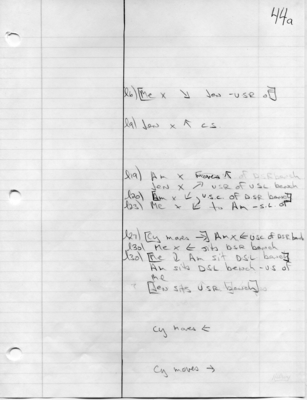 44a
16) [Me x ↘ Jen - USR of]
19) Jen x ↑ CS
119) Am x ↑ of DSR bench
Jen x ↗ USR of USL bench
120) [Am x ↙ USC of DSR bench]
Me x ↙ to Am - S.L. of
127) [Cy moves →] Am x ← USC of DSR bench
130) Me x ← sits DSR bench
130) [Me ↓ Am sit DSL bench]
Am sits DSL bench - US of
Me
[Jen sits USR bench]
Cy moves ←
Cy moves →